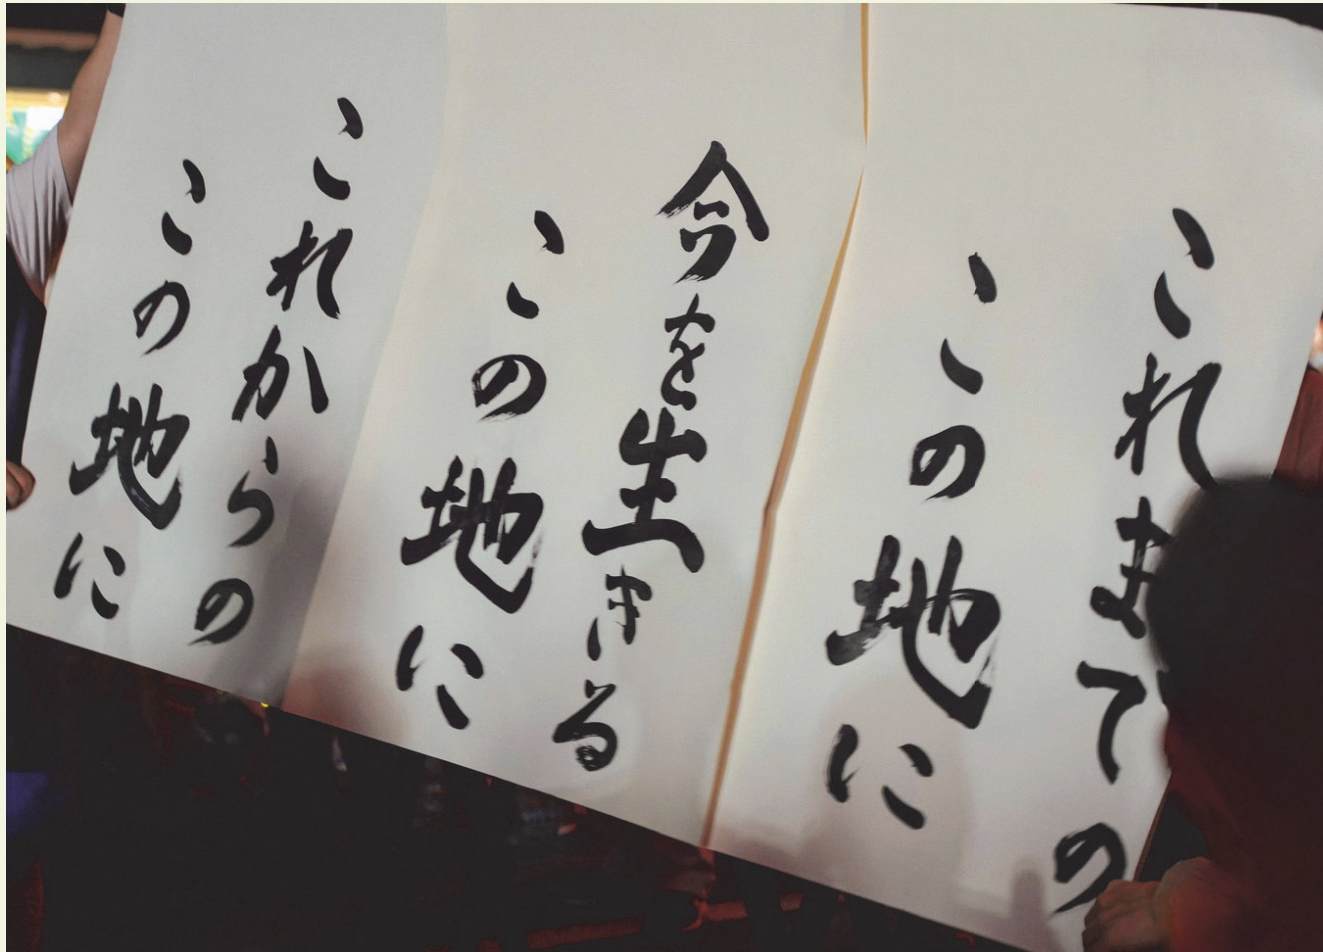 これまでの
この地に
今を生きる
この地に
これからの
この地に